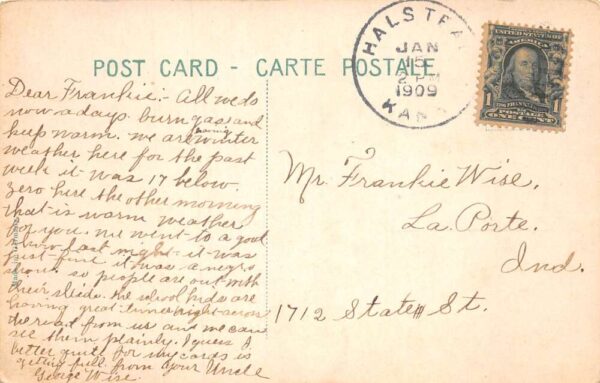 POST CARD - CARTE POSTALE
HALSTEAD
JAN
15
2 PM
1909
KAN
UNITED STATES OF AMERICA
1
FRANKLIN
POSTAGE
ONE CENT
Dear Frankie:- All we do
now a days burn gas and
keep warm. we are having winter
weather here for the past
week it was 17 below
zero here the other morning
that is warm weather
for you. we went to a good
show last night it was
just fine it was a negro
show. so people are out with
their sleds. the school kids are
having great times right across
the road from us and we can
see them plainly. I guess I
better quit for my cards is
getting full. from Your Uncle
George Wise.
Mr. Frankie Wise.
La Porte.
Ind.
1712 State St.